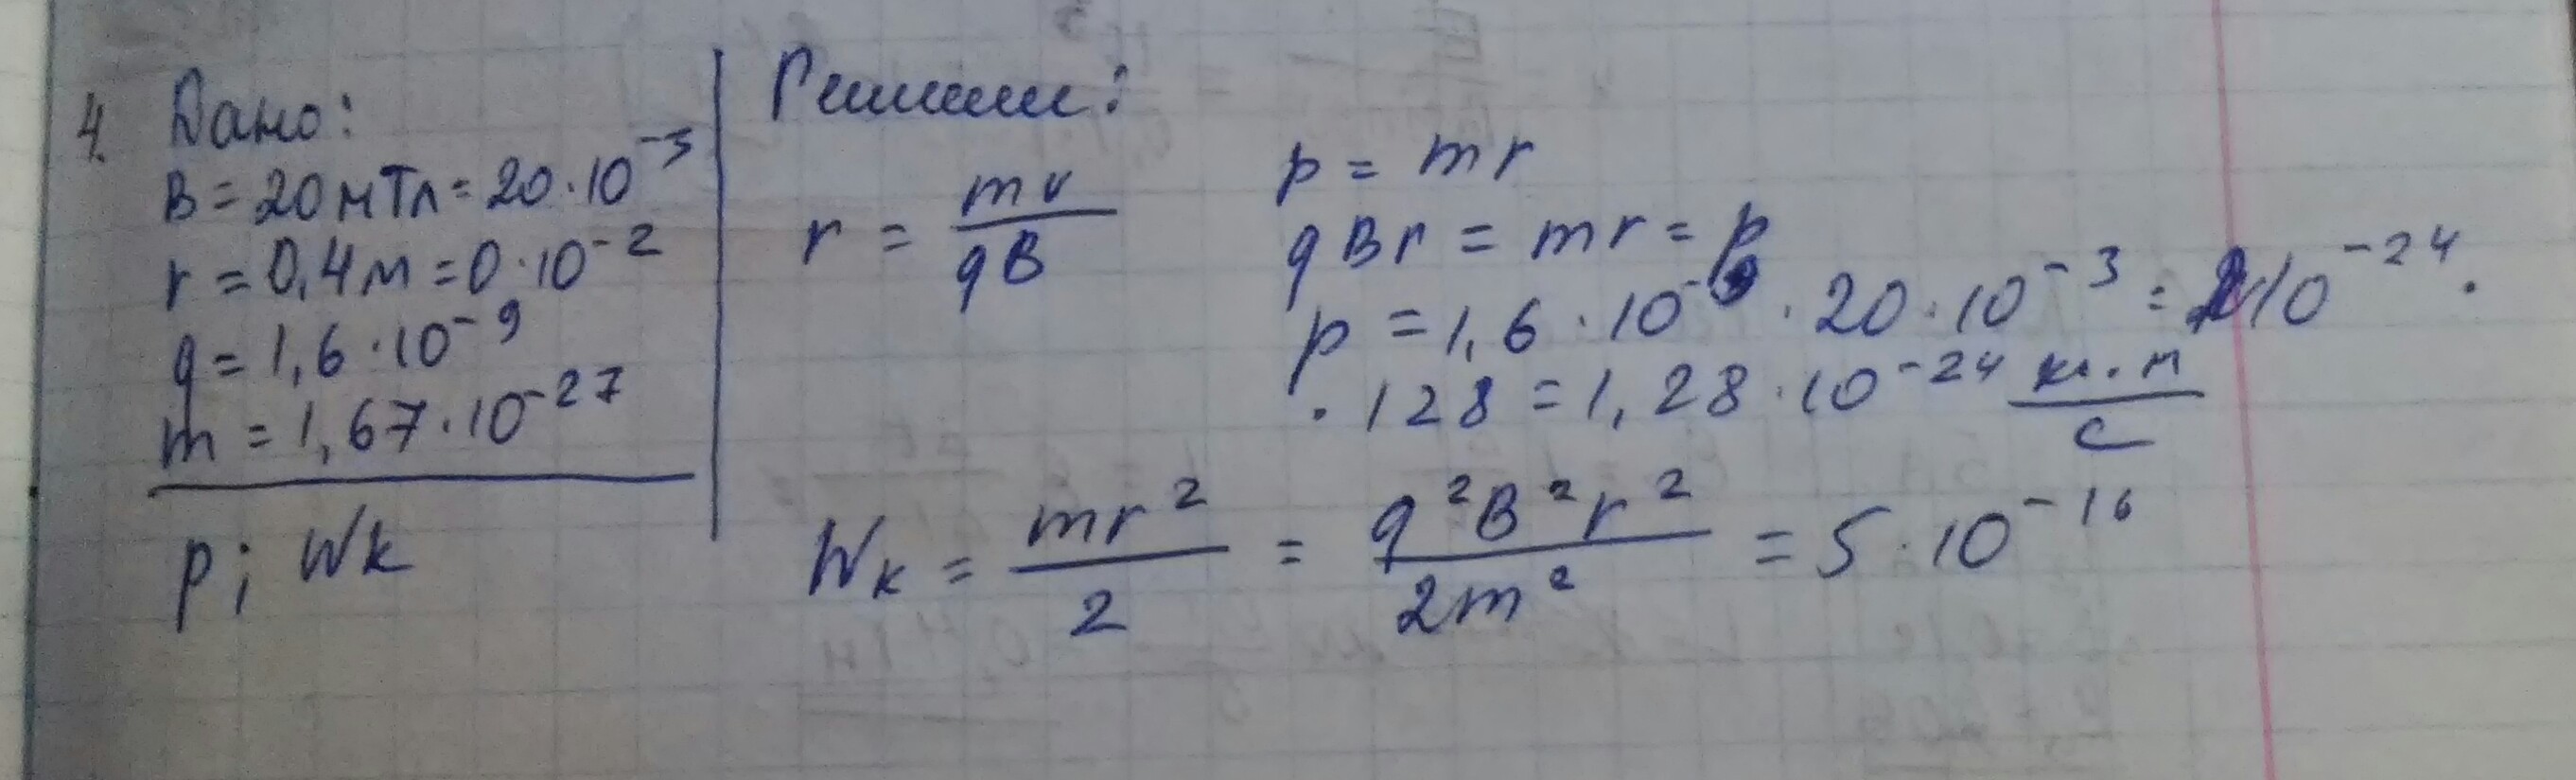 4. Дано:
B = 20 мТл = 20·10⁻³
r = 0,4 м = 0·10⁻²
q = 1,6·10⁻⁹
m = 1,67·10⁻²⁷
p; Wk
Решение:
r = mv / qB
p = mr
qBr = mr = p
p = 1,6·10⁻⁹·20·10⁻³ = 10⁻²⁴·
·128 = 1,28·10⁻²⁴ кг·м / с
Wк = mr² / 2 = q²B²r² / 2m² = 5·10⁻¹⁶